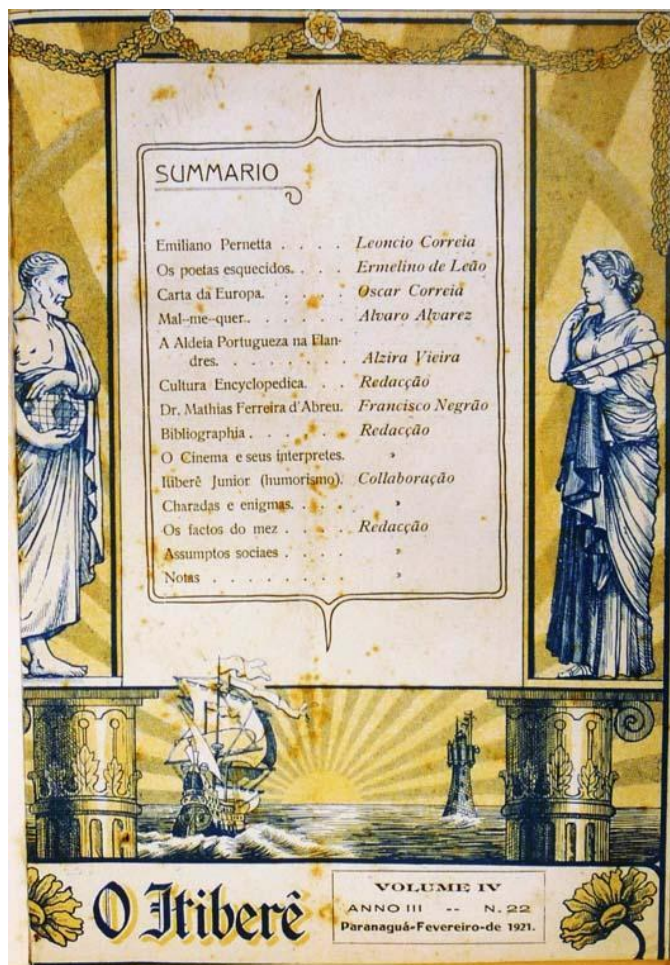 SUMMARIO
Emiliano Pernetta . . . . Leoncio Correia
Os poetas esquecidos. . . . Ermelino de Leão
Carta da Europa. . . . . Oscar Correia
Mal--me--quer. . . . . . Alvaro Alvarez
A Aldeia Portugueza na Flan-
dres. . . . . . . . Alzira Vieira
Cultura Encyclopedica. . . Redacção
Dr. Mathias Ferreira d'Abreu. Francisco Negrão
Bibliographia . . . . . . Redacção
O Cinema e seus interpretes. »
Itiberê Junior (humorismo). Collaboração
Charadas e enigmas. . . . »
Os factos do mez . . . . Redacção
Assumptos sociaes . . . . »
Notas . . . . . . . . »
O Itiberê
VOLUME IV
ANNO III -- N. 22
Paranaguá-Fevereiro-de 1921.